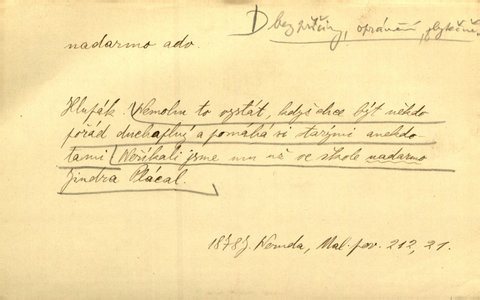 D bez příčiny, oprávnění, zbytečně
nadarmo adv.
Hlupák. Nemohu to vystát, když chce být někdo
pořád duchaplný a pomáhá si starými anekdo
tami. Neříkali jsme mu už ve škole nadarmo
Jindra Plácal.
1878 J. Neruda, Mal. pov. 212, 21.